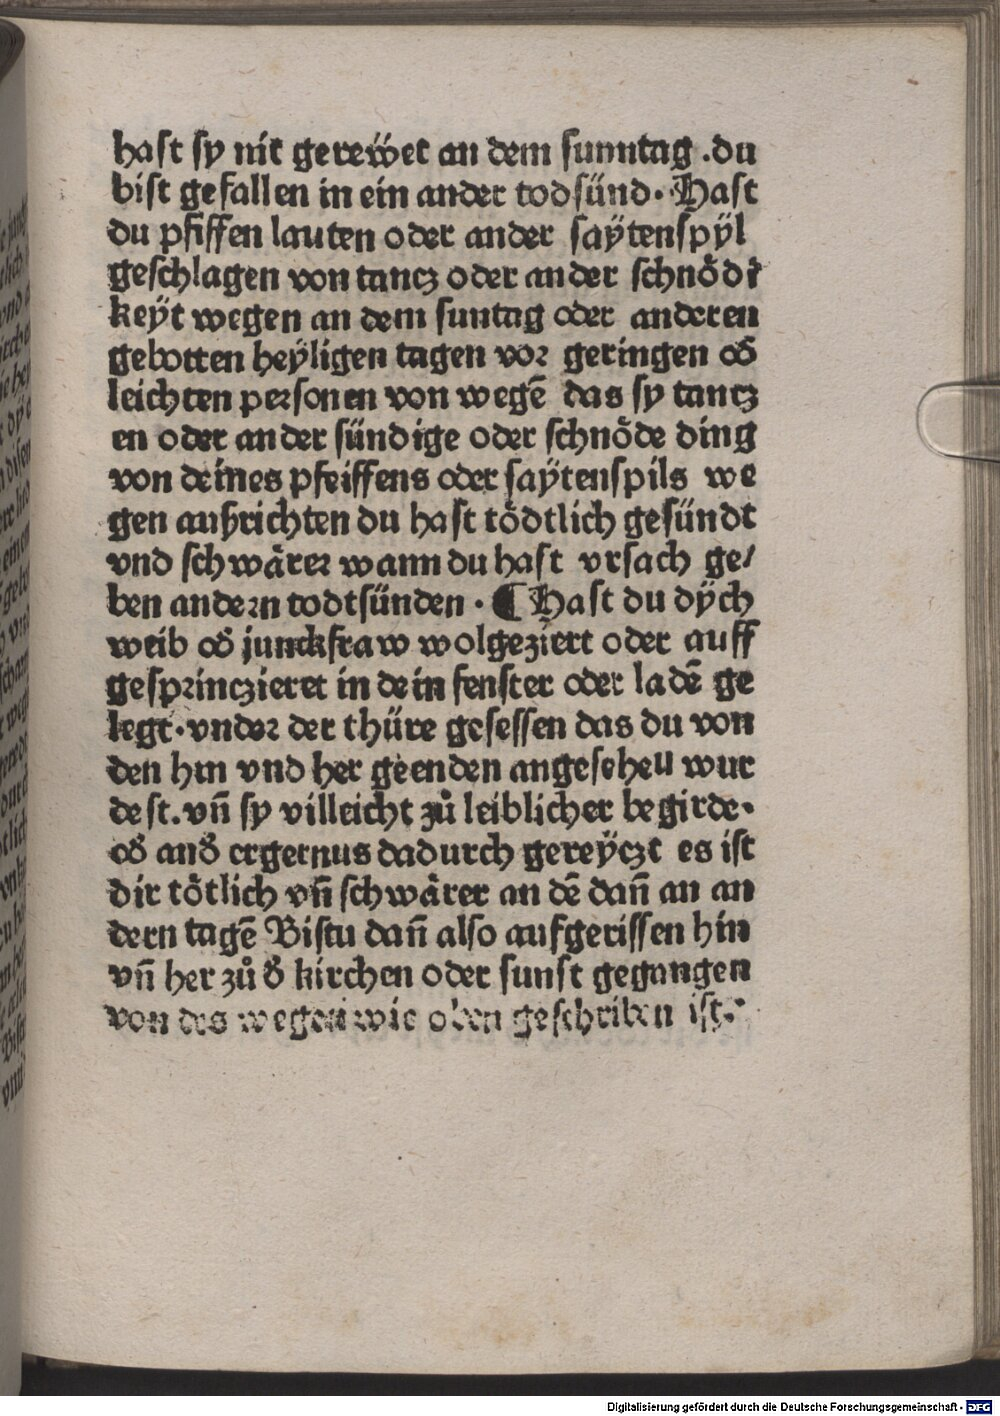 hast sy nit gerewet an dem sunntag .du
bist gefallen in ein ander todsünd. Hast
du pfiffen lauten oder ander saÿtenspÿl
geschlagen von tancz oder ander schnödi
keÿt wegen an dem suntag oder anderen
gebotten heÿligen tagen vor geringen od̕
leichten personen von wegē das sy tancz
en oder ander sündige oder schnöde ding
von deines pfeiffens oder saÿtenspils we
gen außrichten du hast tödtlich gesündt
vnd schwärer wann du hast vrsach ge/
ben andern todtsünden . ¶ Hast du dÿch
weib od̕ junckfraw wolgeziert oder auff
gesprinczieret in dein fenster oder ladē ge
legt.vnder der thüre gesessen das du von
den hin vnd her geenden angeseheu wur
dest.vn̄ sy villeicht zů leiblicher begirde.
od̕ and̕ ergernus dadurch gereÿczt es ist
dir tötlich vn̄ schwärer an dē dan̄ an an
dern tagē Bistu dan̄ also aufgerissen hin
vn̄ her zů d̕ kirchen oder sunst gegangen
von des wegen wie oben geschriben ist.
Digitalisierung gefördert durch die Deutsche Forschungsgemeinschaft - DFG